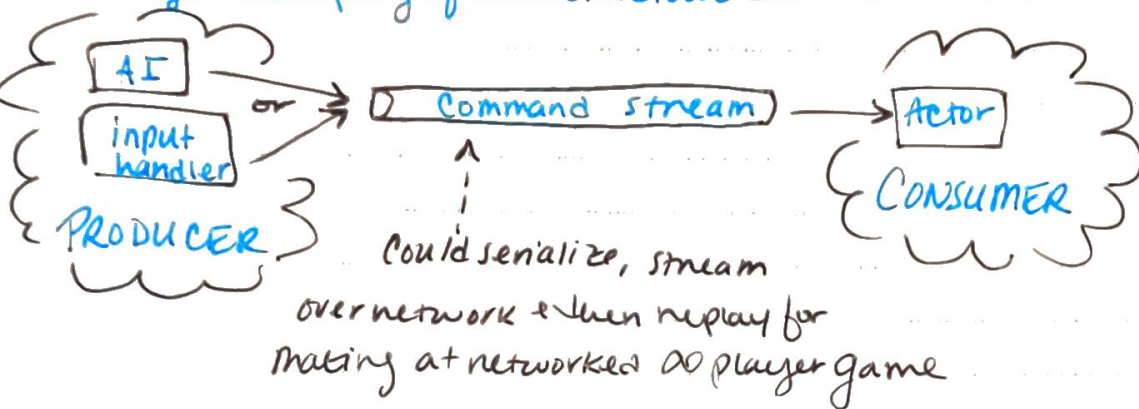 AI
or
input
handler
PRODUCER
Command stream
Actor
CONSUMER
Could serialize, stream
over network & then replay for
making at networked ∞ player game